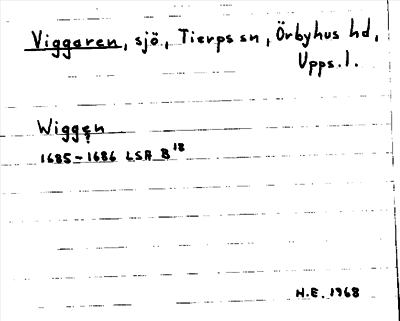 Viggaren, sjö, Tierps sn, Örbyhus hd,
Upps.l.
Wiggen
1685-1686 LSA B18
N.E. 1968